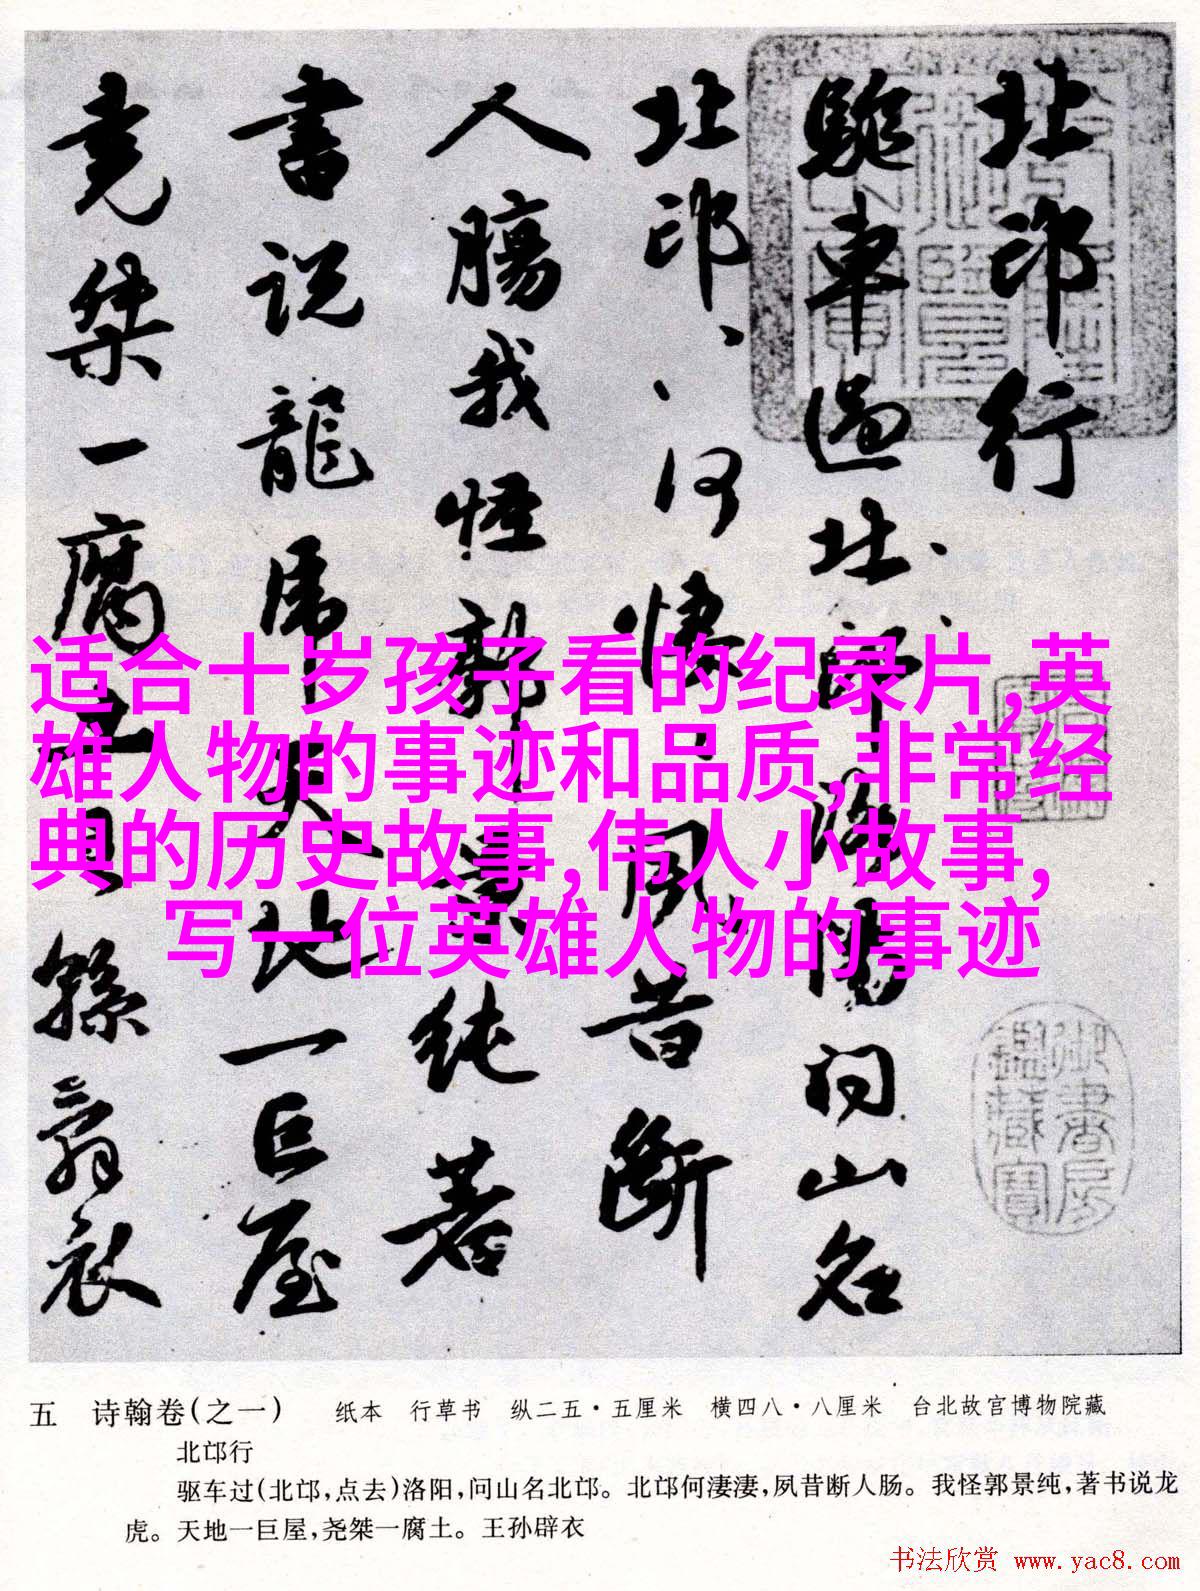 北邙行
驅車過北邙洛陽问山名
北邙、、何悽、夙昔斷
人腸我怪郭景纯著
書说龍虎天地一巨屋
堯桀一腐土王孫辟衣
适合十岁孩子看的纪录片,英
雄人物的事迹和品质,非常经
典的历史故事,伟人小故事,
写一位英雄人物的事迹
御書房鑑藏寶
五 诗翰卷(之一) 纸本 行草书 纵二五·五厘米 横四八·八厘米 台北故宫博物院藏
北邙行
驱车过(北邙,点去)洛阳,问山名北邙。北邙何淒淒,夙昔断人肠。我怪郭景纯,著书说龙
虎。天地一巨屋,尧桀一腐土。王孙辟衣
书法欣赏 www.yac8.com